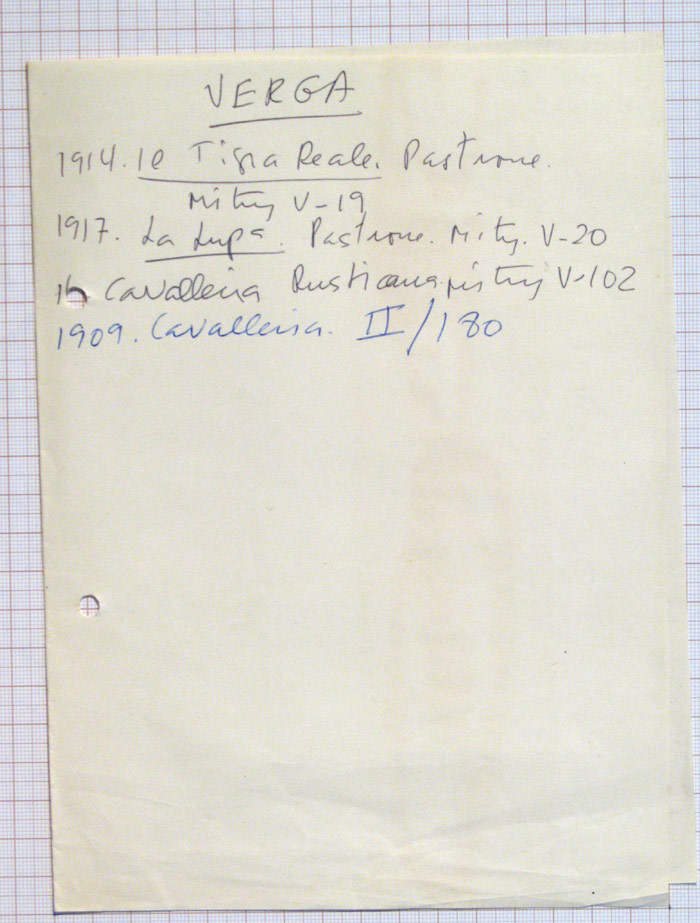 VERGA
1914. Il Tigra Reale. Pastrone.
Mitry V-19
1917. La Lupa. Pastrone. Mitry. V-20
Cavalleria Rusticana Mitry V-102
1909. Cavalleria. II/180